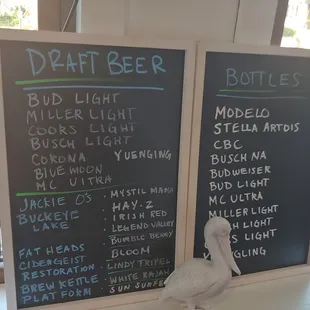 DRAFT BEER
BUD LIGHT
MILLER LIGHT
COORS LIGHT
BUSCH LIGHT
CORONA YUENGING
BLUE MOON
MC ULTRA
JACKIE O'S - MYSTIL MAMA
BUCKEYE LAKE - HAY-Z
- IRISH RED
- LEGEND VALLEY
- BUMBLE BERRY
FAT HEADS - BLOOM
CIDERGEIST
RESTORATION - LINDY TRIPEL
BREW KETTLE - WHITE RAJAH
PLATFORM - SUN SURFER
BOTTLES
MODELO
STELLA ARTOIS
CBC
BUSCH NA
BUDWEISER
BUD LIGHT
MC ULTRA
MILLER LIGHT
LIGHT
LIGHT